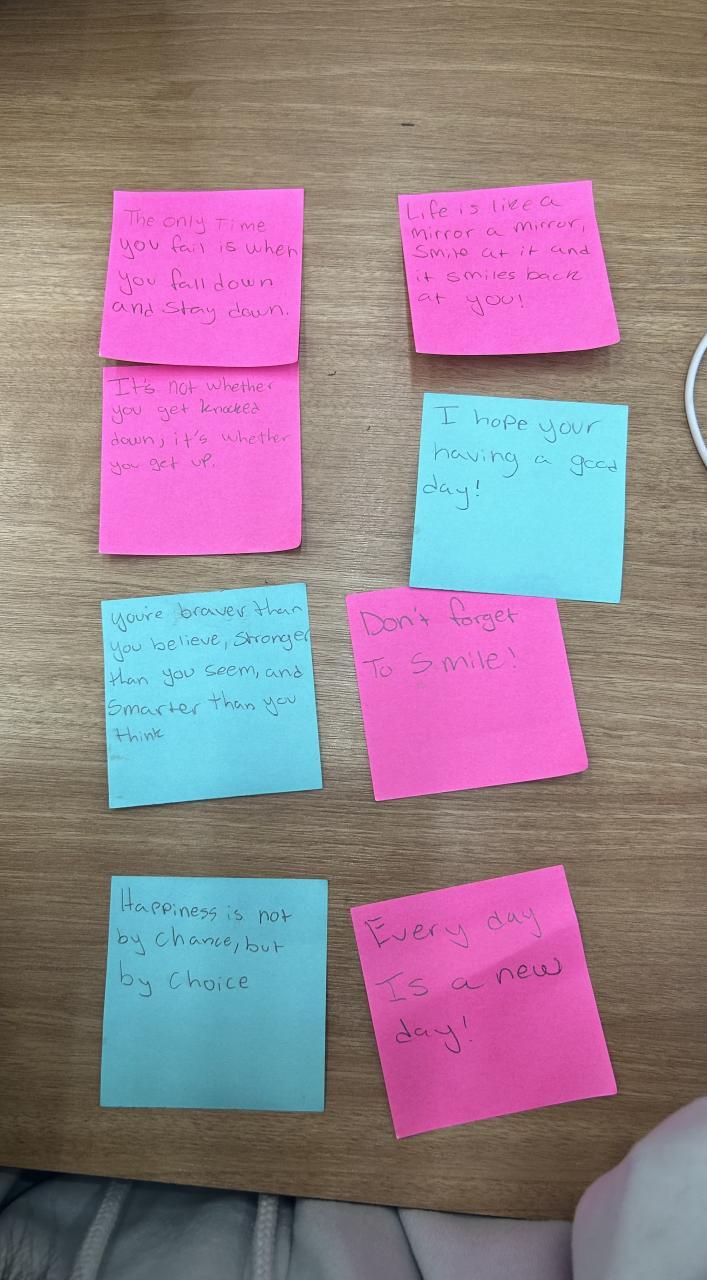 The only Time
you fail is when
you fall down
and stay down.
Life is like a
mirror a mirror,
Smile at it and
it smiles back
at you!
It's not whether
you get knocked
down, it's whether
you get up.
I hope your
having a good
day!
you're braver than
you believe, Stronger
than you seem, and
Smarter than you
think
Don't forget
To Smile!
Happiness is not
by Chance, but
by Choice
Every day
Is a new
day!